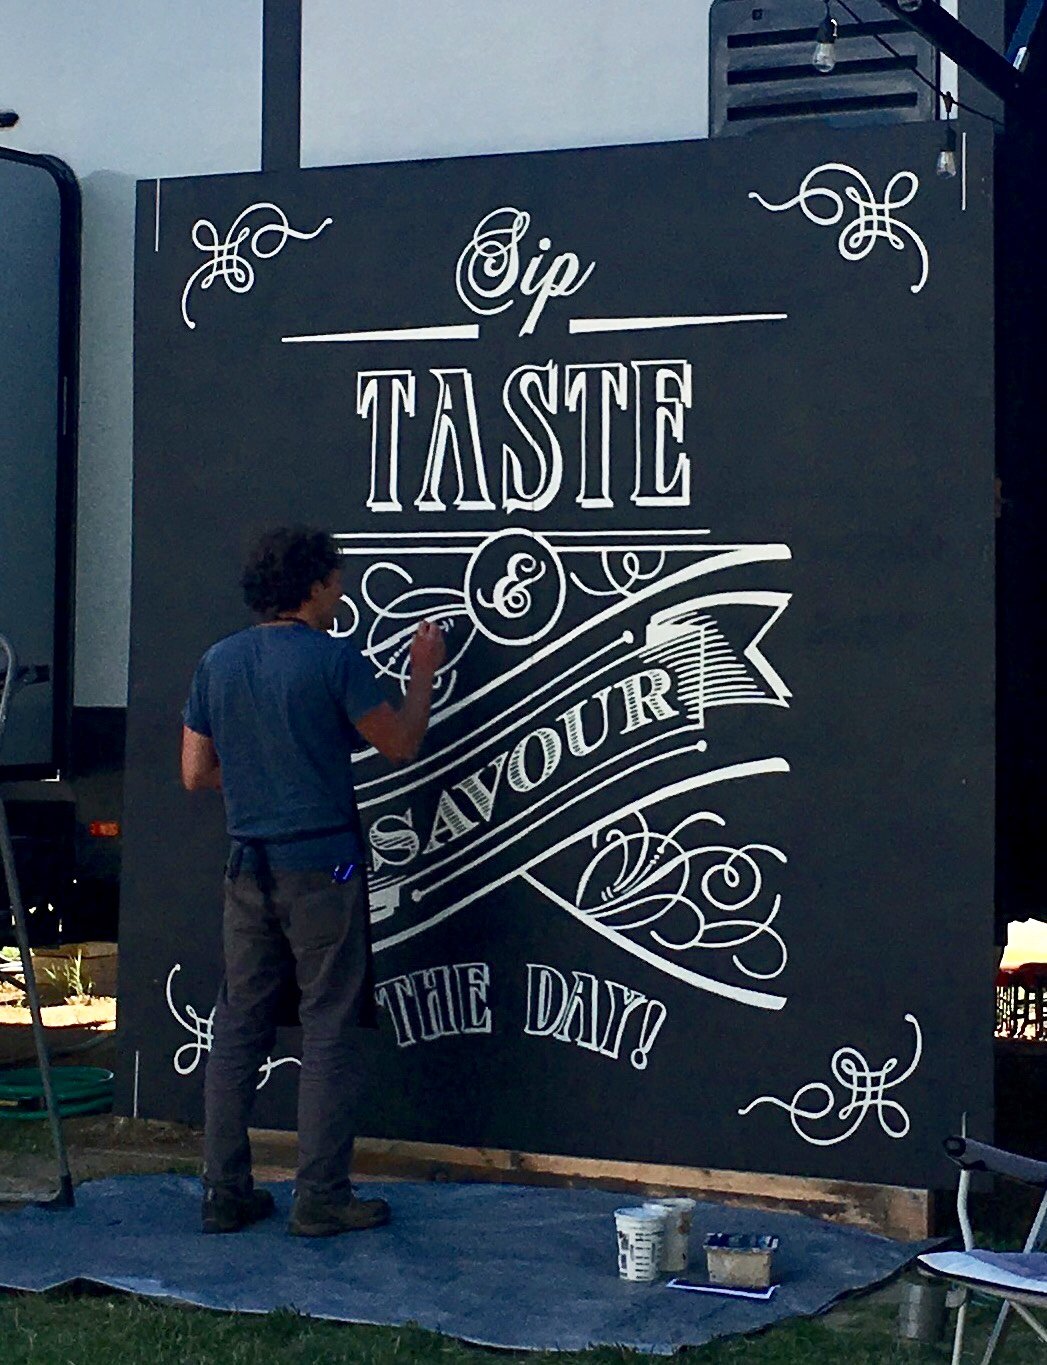 Sip
TASTE
&
SAVOUR
THE DAY!